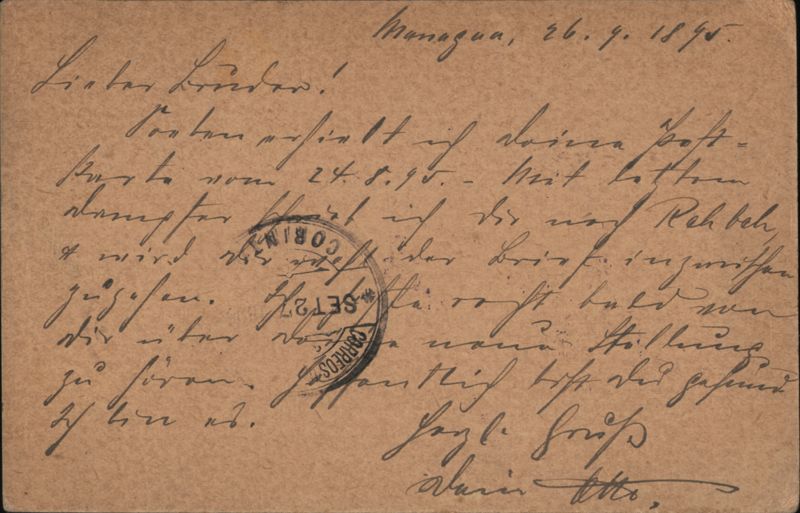 Managua, 26. 9. 1895.
Lieber Bruder!
Soeben erhielt ich deine Post=
karte vom 24. 8. 95. – Mit letztem
Dampfer schrieb ich dir nach Rehbeh,
& wird dir wohl der Brief inzwischen
zugehen. Ich hoffe recht bald von
dir über deine neue Stellung
zu hören. Hoffentlich bist du gesund
Ich bin es.
Herzl. Gruß
Dein Otto.
CORINT
SET 27
CORREOS